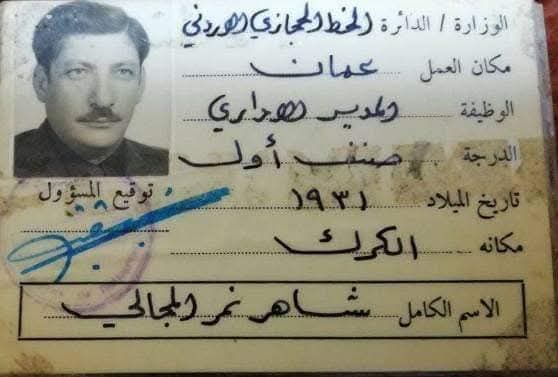 الوزارة / الدائرة الخط الحجازي الاردني
مكان العمل عمان
الوظيفة المدير الاداري
الدرجة صنف أول
تاريخ الميلاد ١٩٣١
مكانه الكرك
توقيع المسؤول
الاسم الكامل شاهر نمر المجالي